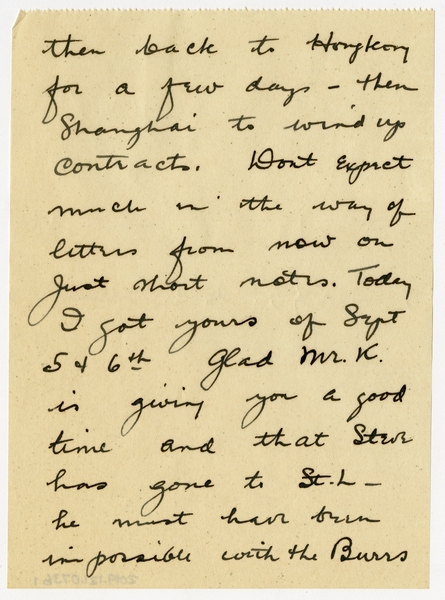 then back to Hongkong
for a few days - then
Shanghai to wind up
contracts. Dont expect
much in the way of
letters from now on
Just short notes. Today
I got yours of Sept
5 & 6th Glad Mr. K.
is giving you a good
time and that Steve
has gone to St. L -
he must have been
impossible with the Burrs